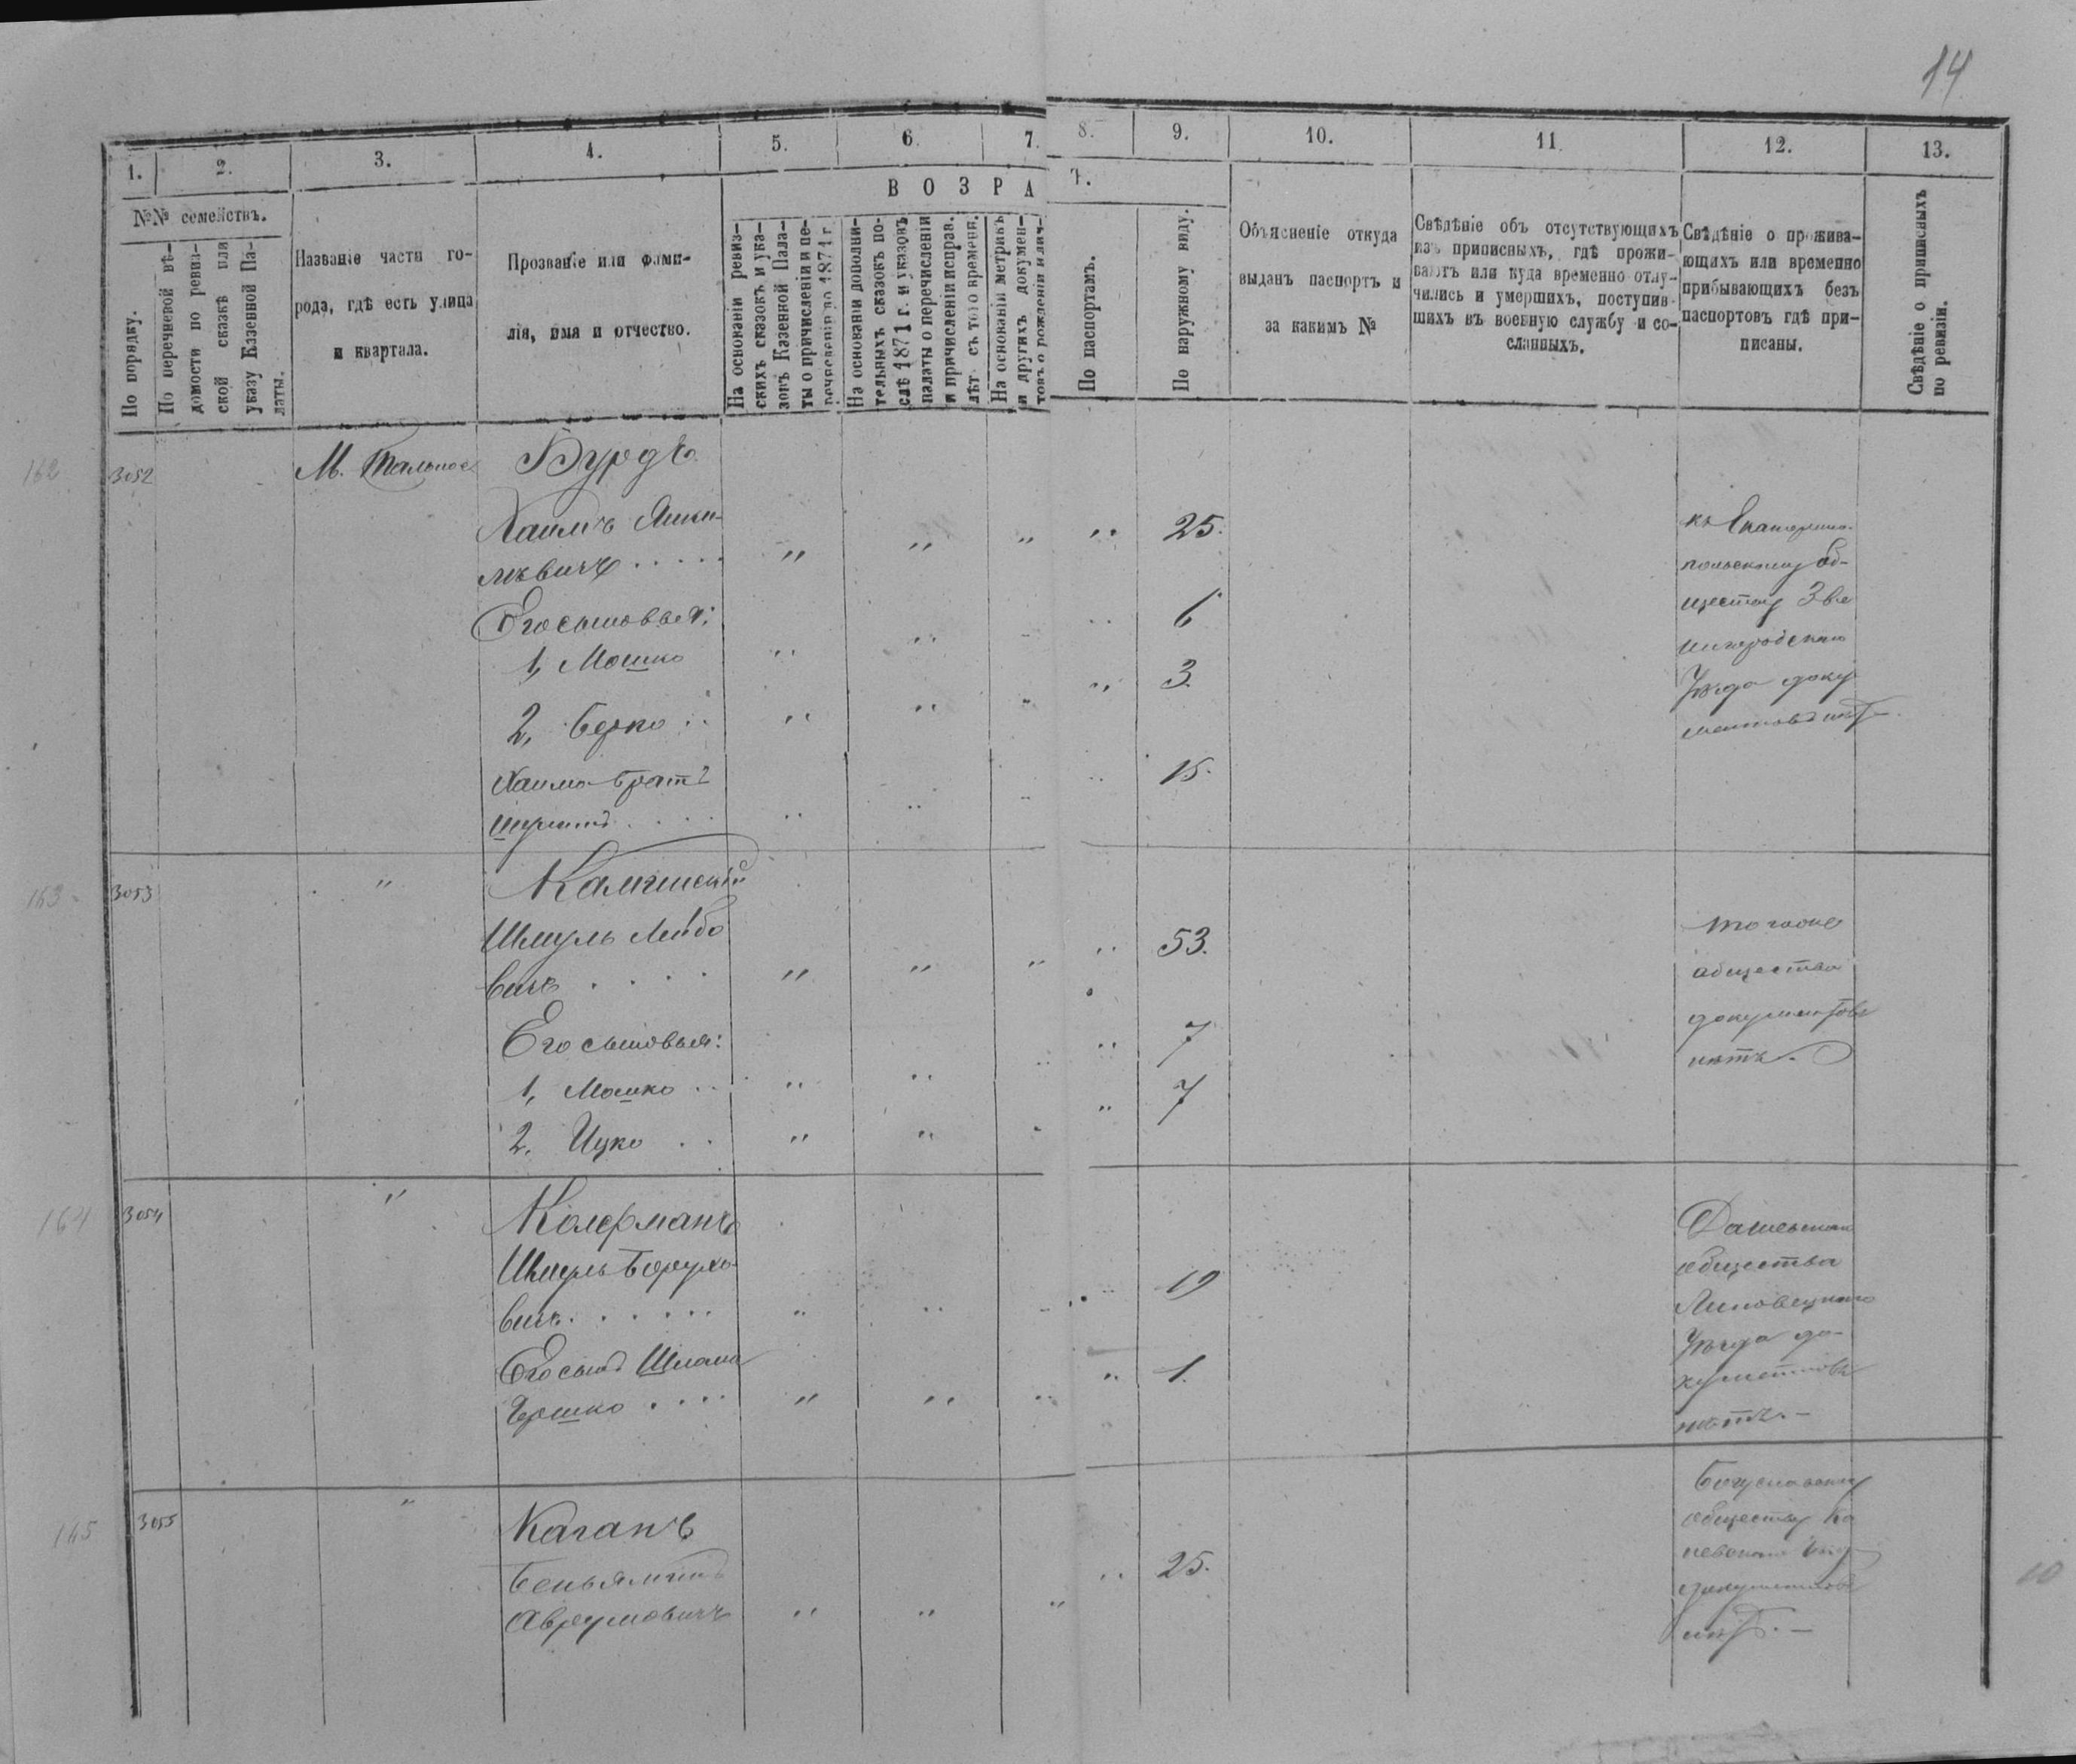 14
1. 2. 3. 4. 5. 6. 7. 8. 9. 10. 11. 12. 13.
№№ семействъ.
По порядку.
По перечневой вѣ-
домости по ревиз-
ской сказкѣ или
указу Казенной Па-
латы.
Названіе части го-
рода, гдѣ есть улица
и квартала.
Прозваніе или фами-
лія, имя и отчество.
В О З Р А Т.
На основаніи ревиз-
скихъ сказокъ и ука-
зовъ Казенной Пала-
ты о причисленіи и пе-
речисленіи до 1871 г.
На основаніи дополни-
тельныхъ сказокъ по-
слѣ 1871 г. и указовъ
палаты о перечисленіи
и причисленіи исправ.
лѣт съ того времени.
На основаніи метрикъ
и другихъ докумен-
товъ о рожденіи и лич-
По паспортамъ.
По наружному виду.
Объясненіе откуда
выданъ паспортъ и
за какимъ №
Свѣдѣніе объ отсутствующихъ
изъ приписныхъ, гдѣ прожи-
ваютъ или куда временно отлу-
чились и умершихъ, поступив-
шихъ въ военную службу и со-
сланныхъ.
Свѣдѣніе о прожива-
ющихъ или временно
прибывающихъ безъ
паспортовъ гдѣ при-
писаны.
Свѣдѣніе о приписныхъ
по ревизіи.
162 3052 М. Тальное Бурдъ
Хаимъ Янки-
левичъ . . . . . " " " " 25.
къ Екатерино-
польскому об-
ществу Зве
нигородскаго
Уѣзда доку
ментовъ нѣтъ
Его сыновья:
1, Мошко " " " " 6
2, Берко " " " " 3.
Хаима братъ
. . . . " " " " 15.
163 3053 " Камінскій
Шмуль Лейбо
вичъ . . . . " " " " 53.
того же
общества
документовъ
нѣтъ.
Его сыновья:
1, Мошко . . " " " " 7
2. Ицко . . " " " " 7
164 3054 " Колерманъ
Шмуль Борухо-
вичъ . . . . . . " " " " 19
Дашевскаго
общества
Липовецкаго
Уѣзда до-
кументовъ
нѣтъ. —
Его сынъ Шлома
Гершко . . . . " " " " 1.
165 3055 " Каганъ
Беньяминъ
Аврумовичъ " " " " 25.
Богуславскому
обществу Ка
невскаго
документовъ
нѣтъ. —
10